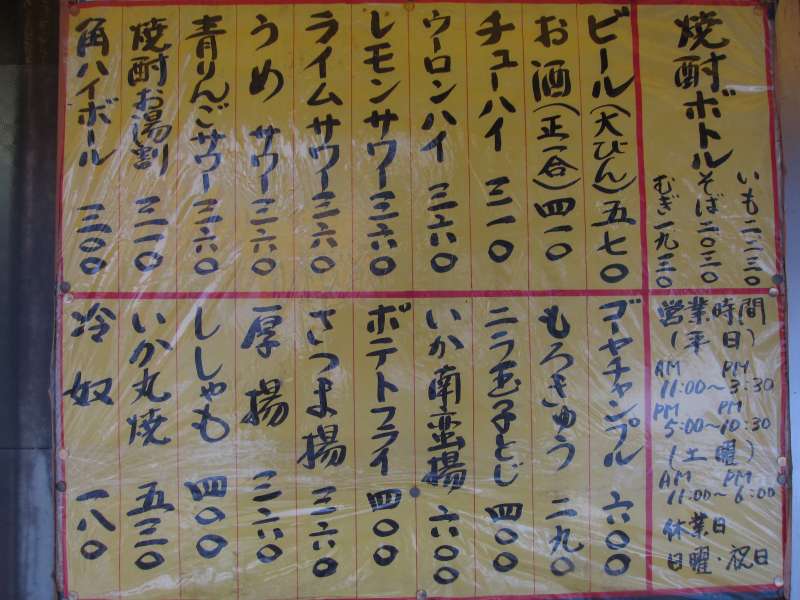 焼酎ボトル
いも二二三〇
そば二〇三〇
むぎ一九三〇
ビール(大びん)五七〇
お酒(正一合)四一〇
チューハイ 三一〇
ウーロンハイ 三六〇
レモンサワー三六〇
ライムサワー三六〇
うめ サワー三六〇
青りんごサワー三六〇
焼酎お湯割 三一〇
角ハイボール 三〇〇
営業時間
(平日)
AM PM
11:00～3:30
PM PM
5:00～10:30
(土曜)
AM PM
11:00～6:00
休業日
日曜・祝日
ゴーヤチャンプル 六〇〇
もろきゅう 二九〇
ニラ玉子とじ 四〇〇
いか南蛮揚 六〇〇
ポテトフライ 四〇〇
さつま揚 三六〇
厚揚 三六〇
ししゃも 四〇〇
いか丸焼 五三〇
冷奴 一八〇